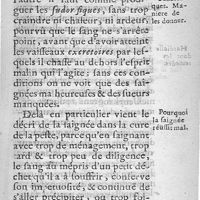 guer les sudorifiques, sans trop
craindre ni chaleur, ni ardeur,
pourvû que le sang ne s'arrête
point, avant que d'avoir atteint
les vaisseaux excretoires par les-
quels il chasse au dehors l'esprit
malin qui l'agite; sans ces condi-
tions on ne voit que des sai-
gnées malheureuses & des sueurs
manquées.
Delà en particulier vient le
décri de la saignée dans la cure
de la peste, parce qu'en saignant
avec trop de ménagement, trop
tard & trop peu de diligence,
le sang au mépris d'un petit dé-
chet qu'il a à souffrir, conserve
son impetuosité, & continuë de
s'aller précipiter, ou trop foi-
quet. Ma-
niere de
les donner.
Pourquoi
la saignée
réussit mal.